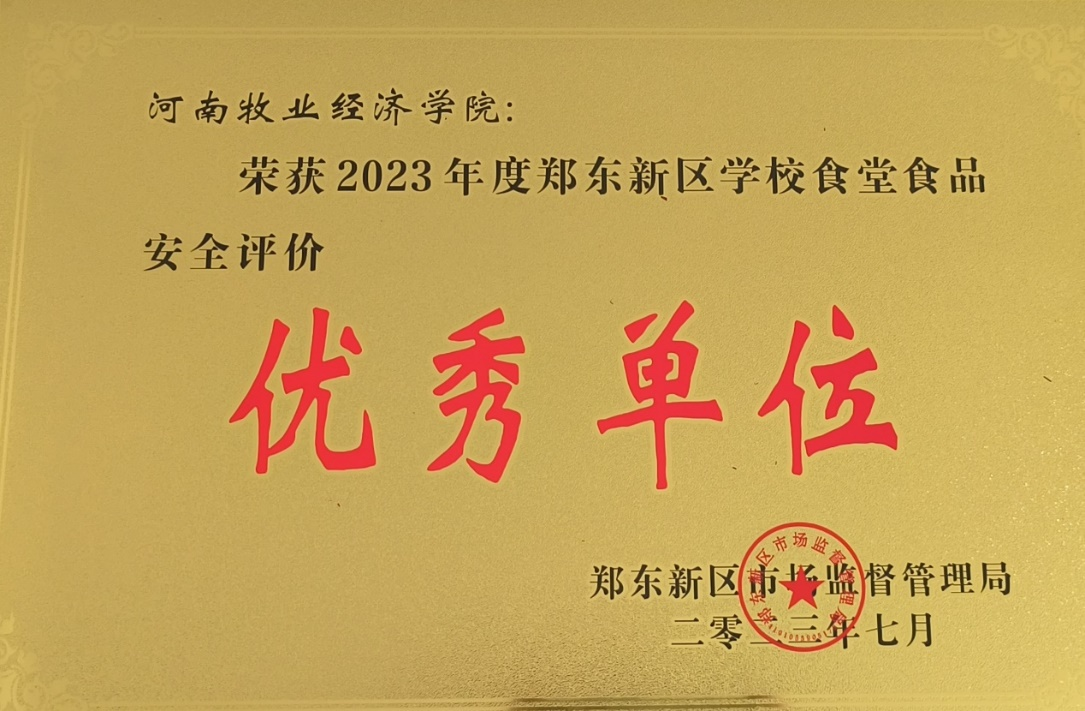 河南牧业经济学院:
荣获2023年度郑东新区学校食堂食品
安全评价
优秀单位
郑东新区市场监督管理局
二零二三年七月
郑东新区市场监督管理局